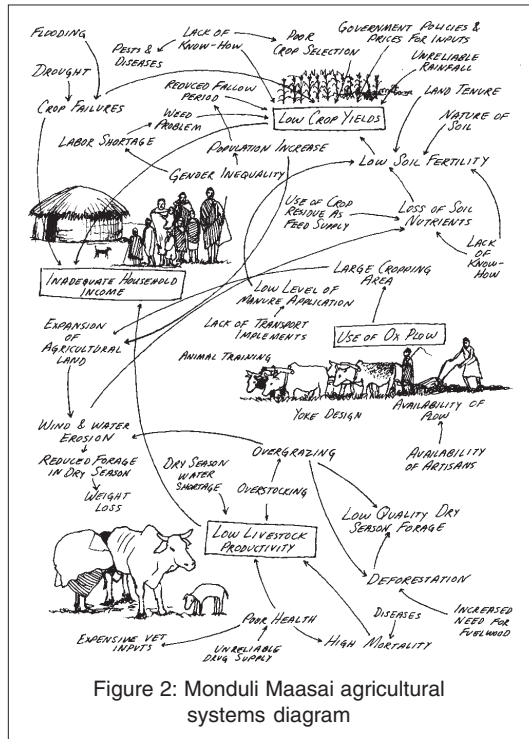 FLOODING
DROUGHT
CROP FAILURES
PESTS &
DISEASES
LACK OF
KNOW-HOW
POOR
CROP SELECTION
GOVERNMENT POLICIES &
PRICES FOR INPUTS
UNRELIABLE
RAINFALL
LAND TENURE
NATURE OF
SOIL
REDUCED FALLOW
PERIOD
WEED
PROBLEM
LABOR SHORTAGE
LOW CROP YIELDS
POPULATION INCREASE
GENDER INEQUALITY
LOW SOIL FERTILITY
USE OF CROP
RESIDUE AS
FEED SUPPLY
LOSS OF SOIL
NUTRIENTS
LACK
OF
KNOW-HOW
INADEQUATE HOUSEHOLD
INCOME
LARGE CROPPING
AREA
LOW LEVEL OF
MANURE APPLICATION
LACK OF TRANSPORT
IMPLEMENTS
USE OF OX PLOW
EXPANSION
OF
AGRICULTURAL
LAND
ANIMAL TRAINING
YOKE DESIGN
AVAILABILITY OF
PLOW
AVAILABILITY
OF ARTISANS
WIND & WATER
EROSION
REDUCED FORAGE
IN DRY SEASON
WEIGHT
LOSS
DRY SEASON
WATER
SHORTAGE
OVERGRAZING
OVERSTOCKING
LOW QUALITY DRY
SEASON FORAGE
LOW LIVESTOCK
PRODUCTIVITY
DEFORESTATION
INCREASED
NEED FOR
FUELWOOD
DISEASES
POOR HEALTH
HIGH MORTALITY
EXPENSIVE VET
INPUTS
UNRELIABLE
DRUG SUPPLY
Figure 2: Monduli Maasai agricultural
systems diagram